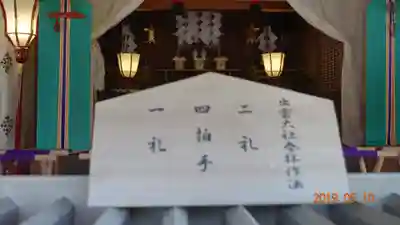 出雲大社参拝作法
二礼
四拍手
一礼
2019.05.10